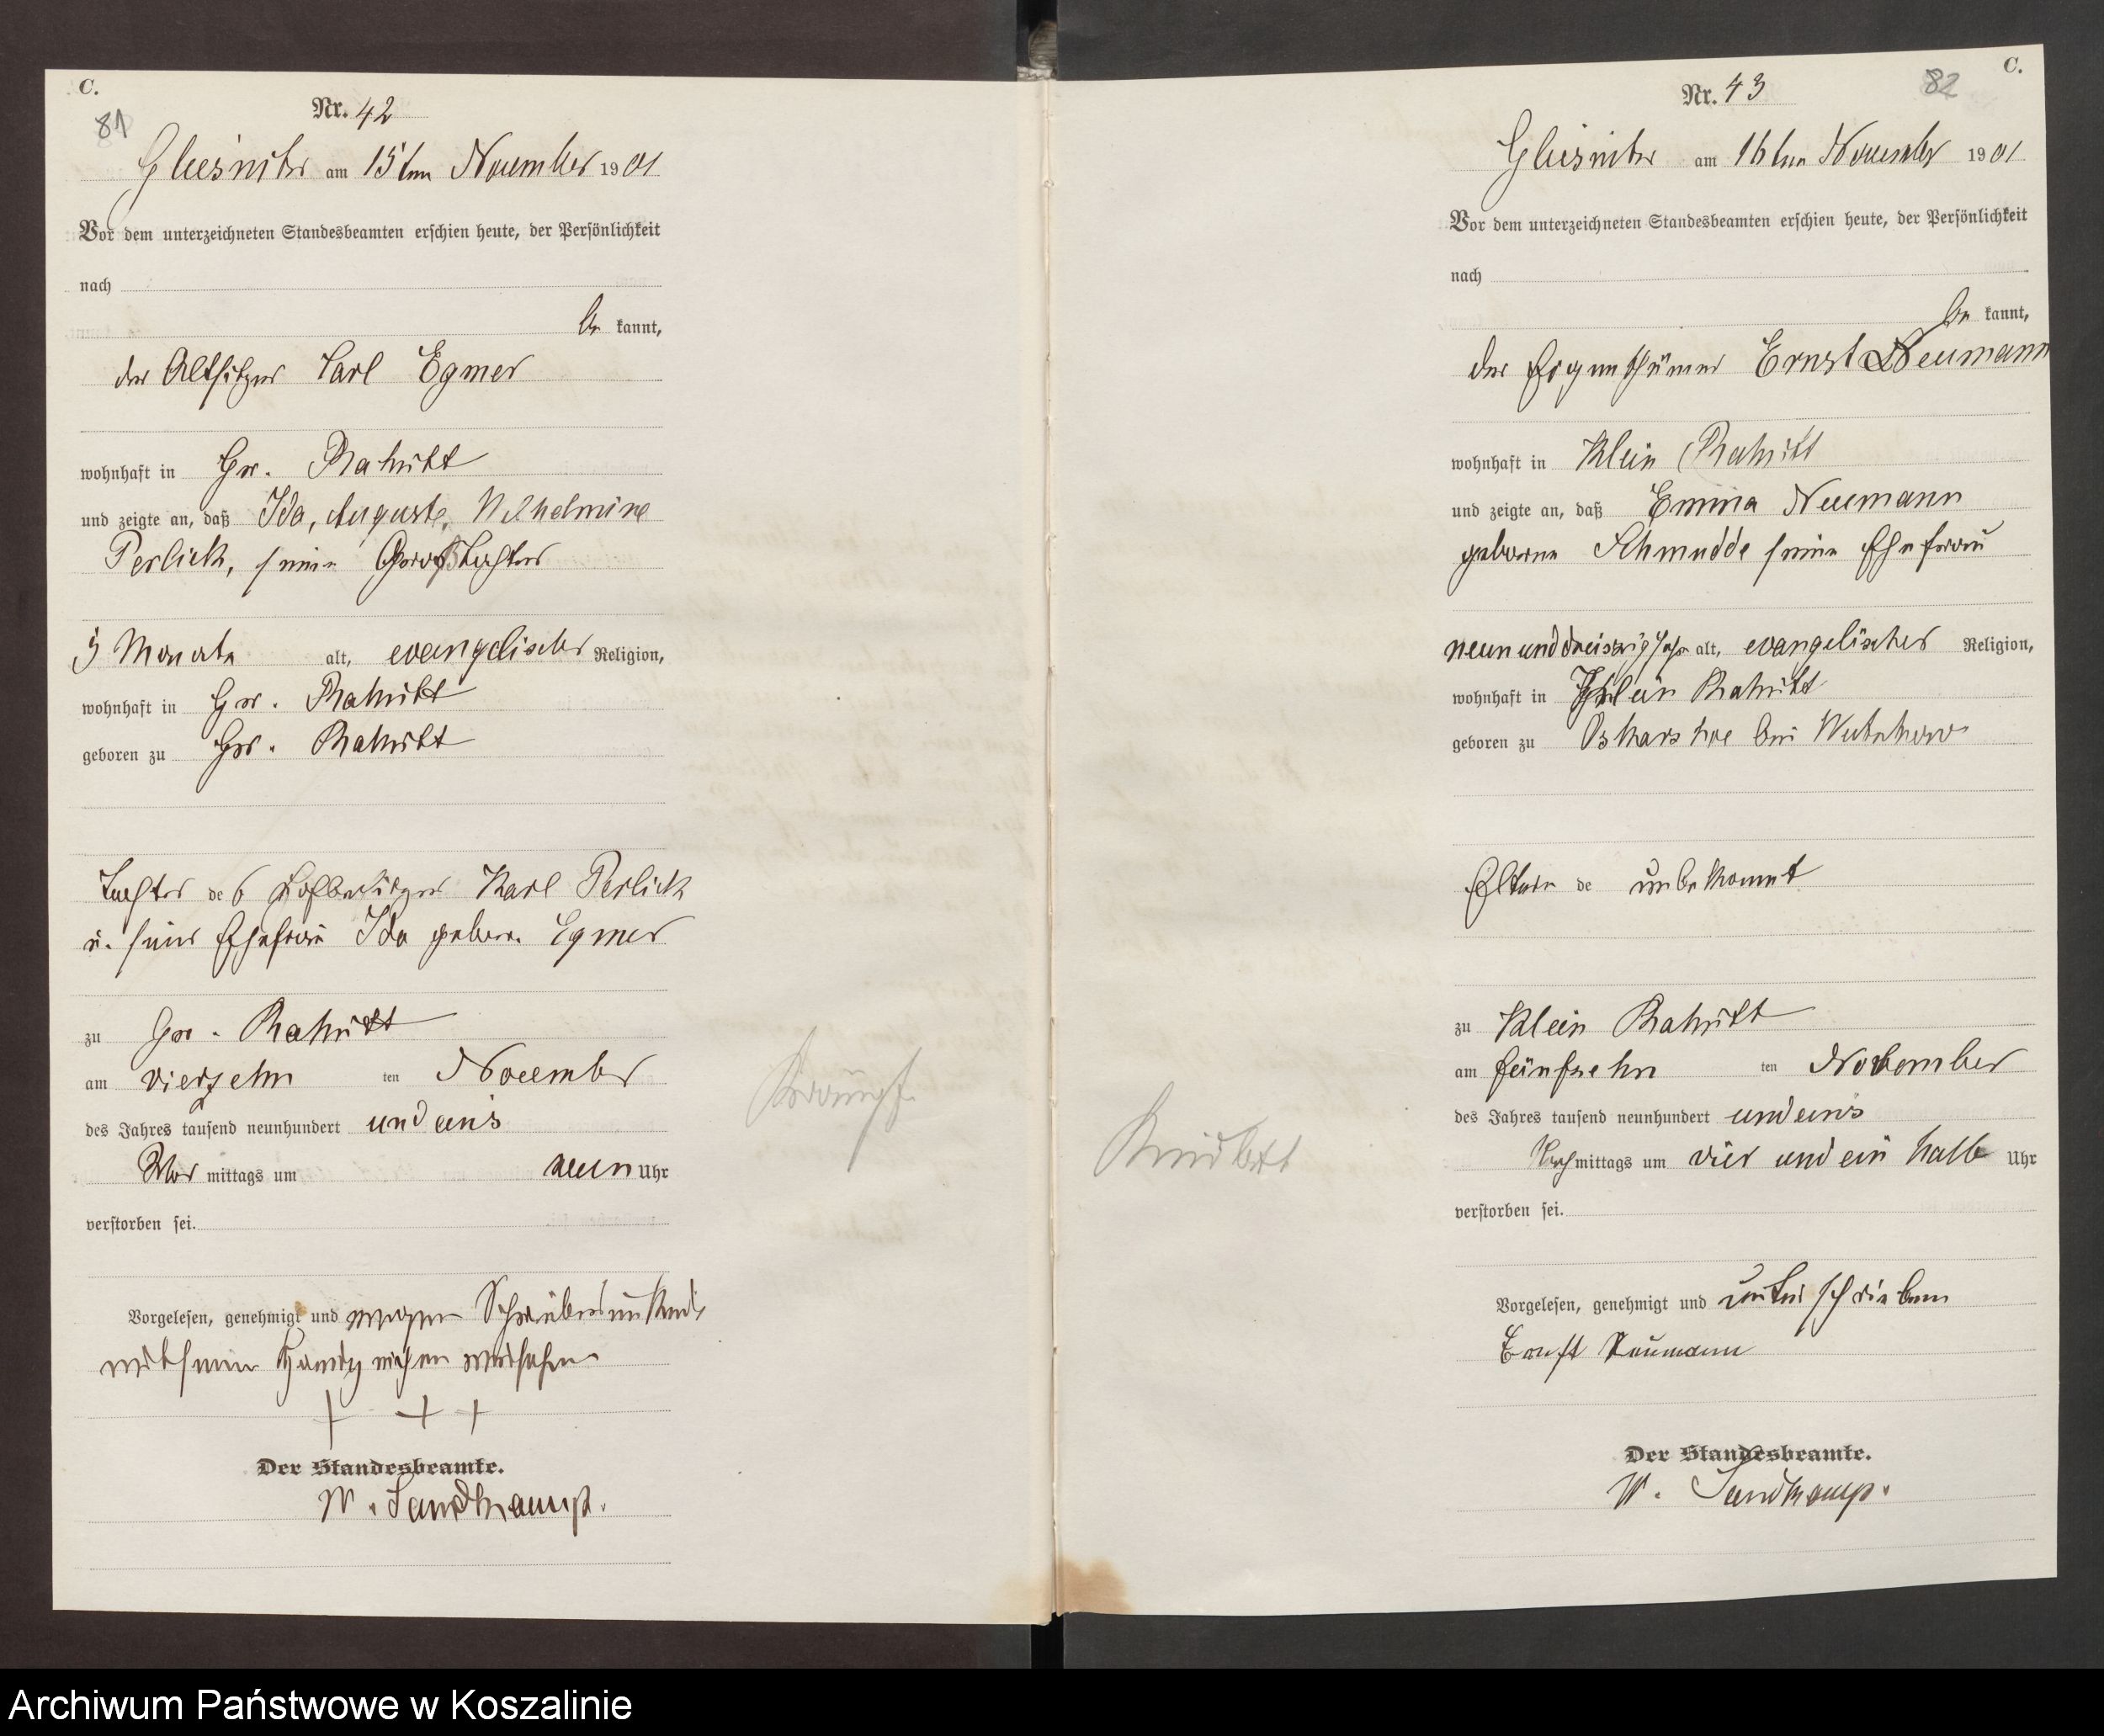 C.
81
Nr. 42
Gliesnitz am 15ten November 1901
Vor dem unterzeichneten Standesbeamten erschien heute, der Persönlichkeit
nach
be kannt,
der Altsitzer Carl Egmer
wohnhaft in Gr. Rakitt
und zeigte an, daß Ida, Auguste, Wilhelmine
Perlick, seine Großtochter
Monate alt, evangelischer Religion,
wohnhaft in Gr. Rakitt
geboren zu Gr. Rakitt
Tochter des Hofbesitzer Karl Perlick
u. seiner Ehefrau Ida geboren Egmer
zu Gr. Rakitt
am vierzehn ten November
des Jahres tausend neunhundert und eins
Vor mittags um neun Uhr
verstorben sei.
Krämpfe
Vorgelesen, genehmigt und wegen Schreibensunkunde
mit seinem Handzeichen versehen
+ + +
Der Standesbeamte.
W. Sandkamp.
C.
82
Nr. 43
Gliesnitz am 16ten November 1901
Vor dem unterzeichneten Standesbeamten erschien heute, der Persönlichkeit
nach
be kannt,
der Eigenthümer Ernst Neumann
wohnhaft in Klein Rakitt
und zeigte an, daß Emma Neumann
geborene Schmudde seine Ehefrau
neununddreiszig Jahr alt, evangelischer Religion,
wohnhaft in Klein Rakitt
geboren zu Oskarshoe bei
Eltern de unbekannt
zu Klein Rakitt
am fünfzehn ten November
des Jahres tausend neunhundert und eins
Nach mittags um vier und ein halb Uhr
verstorben sei.
Kindbett
Vorgelesen, genehmigt und unterschrieben
Ernst Neumann
Der Standesbeamte.
W. Sandkamp.
Archiwum Państwowe w Koszalinie